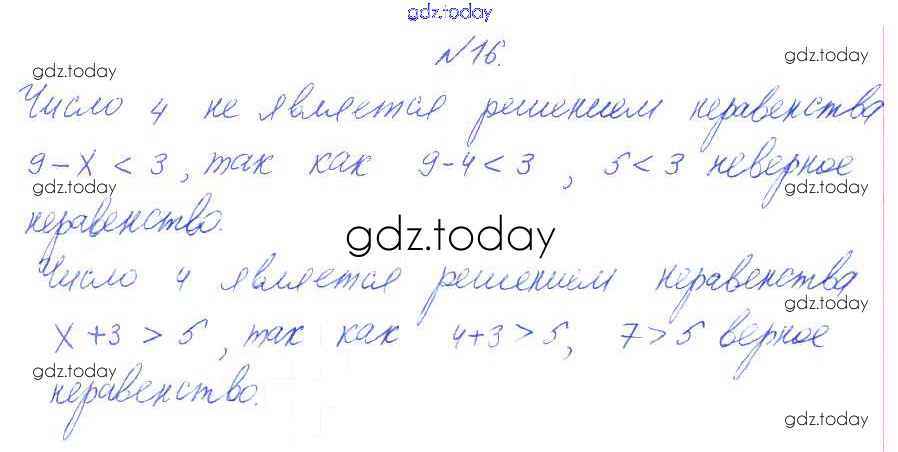 gdz.today
№16.
gdz.today gdz.today
Число 4 не является решением неравенства
9-х < 3, так как 9-4<3, 5<3 неверное
gdz.today gdz.today
неравенство.
gdz.today
Число 4 является решением неравенства
gdz.today
х+3 > 5, так как 4+3>5, 7>5 верное
gdz.today
неравенство.
gdz.today